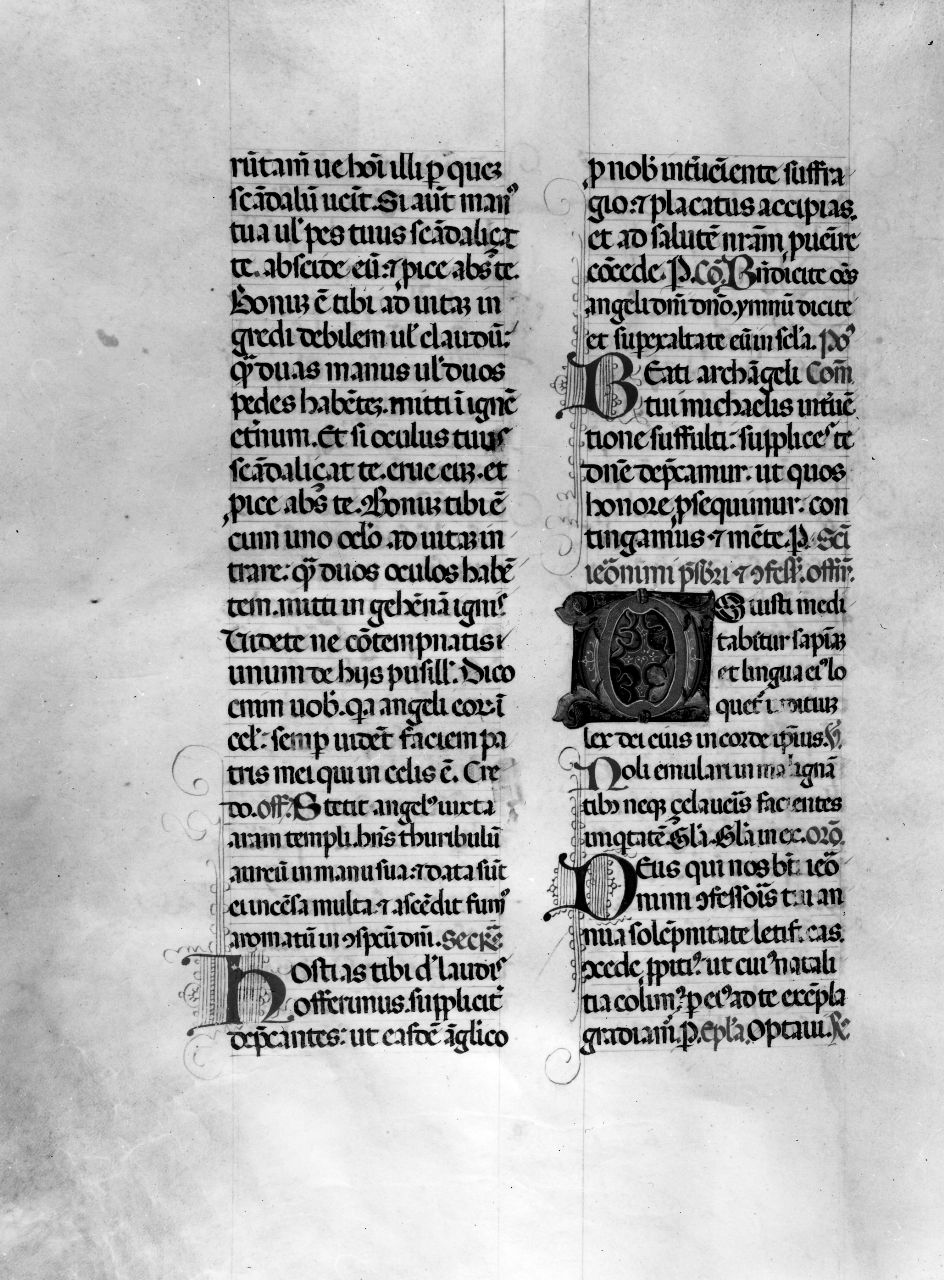 rūtam̄ ue hoī illi ꝑ quez
scādalū uēit. Si aūt manꝰ
tua ul' pes tuus scādaliçat
te. abscide eū: ⁊ ꝓice abs te.
Bonuz ē tibi ad uitaz in
gredi debilem ul' claudū:
qꝫ duas manus ul' duos
pedes habētez. mitti ī ignē
et̄num. Et si oculus tuus
scādaliçat te. erue euz. et
ꝓice abs te. Bonuz tibi ē
cum uno oclo ad uitaz in
trare: qꝫ duos oculos habē
tem. mitti in gehēnā ignis
Uidete ne cōtempnatis
unum de hijs pusill'. Dico
enim uob. qa angeli eor̄ ī
cel': semꝑ uidēt faciem pa
tris mei qui in celis ē. Cre
do. off. Stetit angelꝰ iuxta
aram templi. hn̄s thuribulū
aureū in manu sua: ⁊ data sūt
ei incēsa multa: ⁊ ascēdit fumꝰ
aromatū in ꝯspcū dn̄i. Secre.
Hostias tibi dn̄e laudis
offerimus. supplicit̄
dep̄cantes: ut easdē āglico
ꝓ nob int̄ueniente suffra
gio: ⁊ placatus accipias.
et ad salutē nr̄am ꝓuēire
cōcede. P. Cō. Bn̄dicite oēs
angeli dn̄i dn̄o. ymnū dicite
et suꝑexaltate eū in scl'a. Po
BEati archāgeli Com̄
tui michaelis int̄uē
tione suffulti: supplices te
dn̄e dep̄camur. ut quos
honore ꝓsequimur. con
tingamus ⁊ mēte. P. Sc̄i
ieōnimi p̄sbr̄i ⁊ ꝯfess. offm̄.
OS iusti medi
tabitur sapīaz
et lingua eiꝰ lo
quet̄ iuditiuz
lex dei eius in corde ip̄ius. V.
Noli emulari in malignā
tibꝫ neqꝫ çelaueis facientes
iniq̄tatē. Gl'a. Gl'a in ex. Orō.
DEus qui nos bt̄i ieō
nimi ꝯfessoīs tui an
nua solēpnitate letificas.
ꝯcede ꝓpitiꝰ. ut cuiꝰ natali
tia colimꝰ. ꝑ eiꝰ ad te exēpla
gradiam̄. P. Epl'a. Optaui.